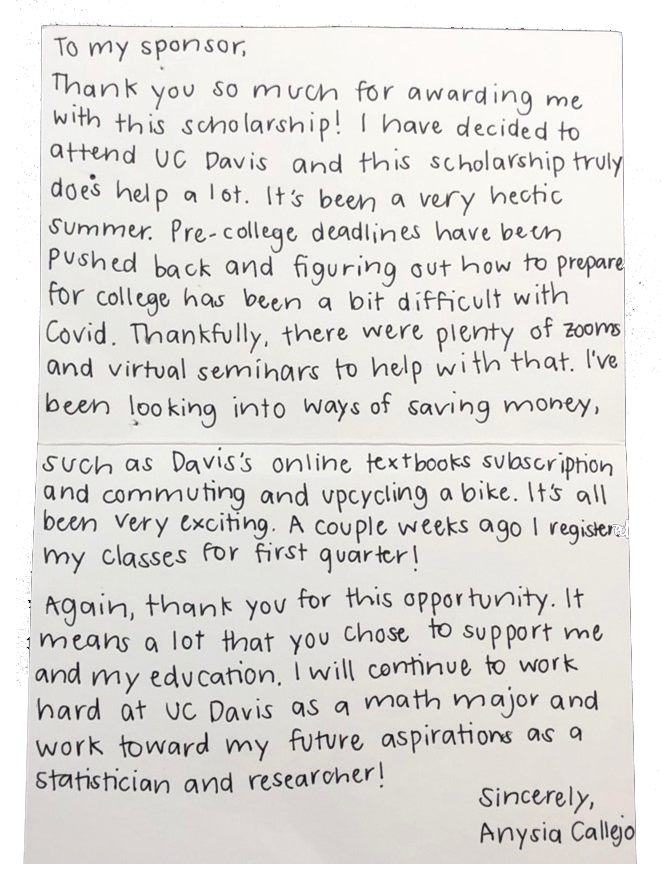 To my sponsor,
Thank you so much for awarding me
with this scholarship! I have decided to
attend UC Davis and this scholarship truly
does help a lot. It's been a very hectic
summer. Pre-college deadlines have been
pushed back and figuring out how to prepare
for college has been a bit difficult with
Covid. Thankfully, there were plenty of zooms
and virtual seminars to help with that. I've
been looking into ways of saving money,
such as Davis's online textbooks subscription
and commuting and upcycling a bike. It's all
been very exciting. A couple weeks ago I registered
my classes for first quarter!
Again, thank you for this opportunity. It
means a lot that you chose to support me
and my education. I will continue to work
hard at UC Davis as a math major and
work toward my future aspirations as a
statistician and researcher!
Sincerely,
Anysia Callejo